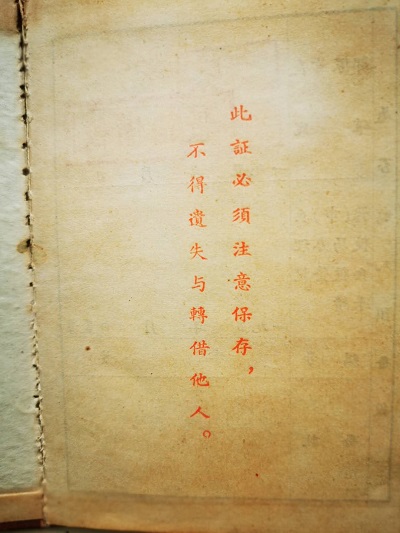 此証必须注意保存，
不得遺失与轉借他人。